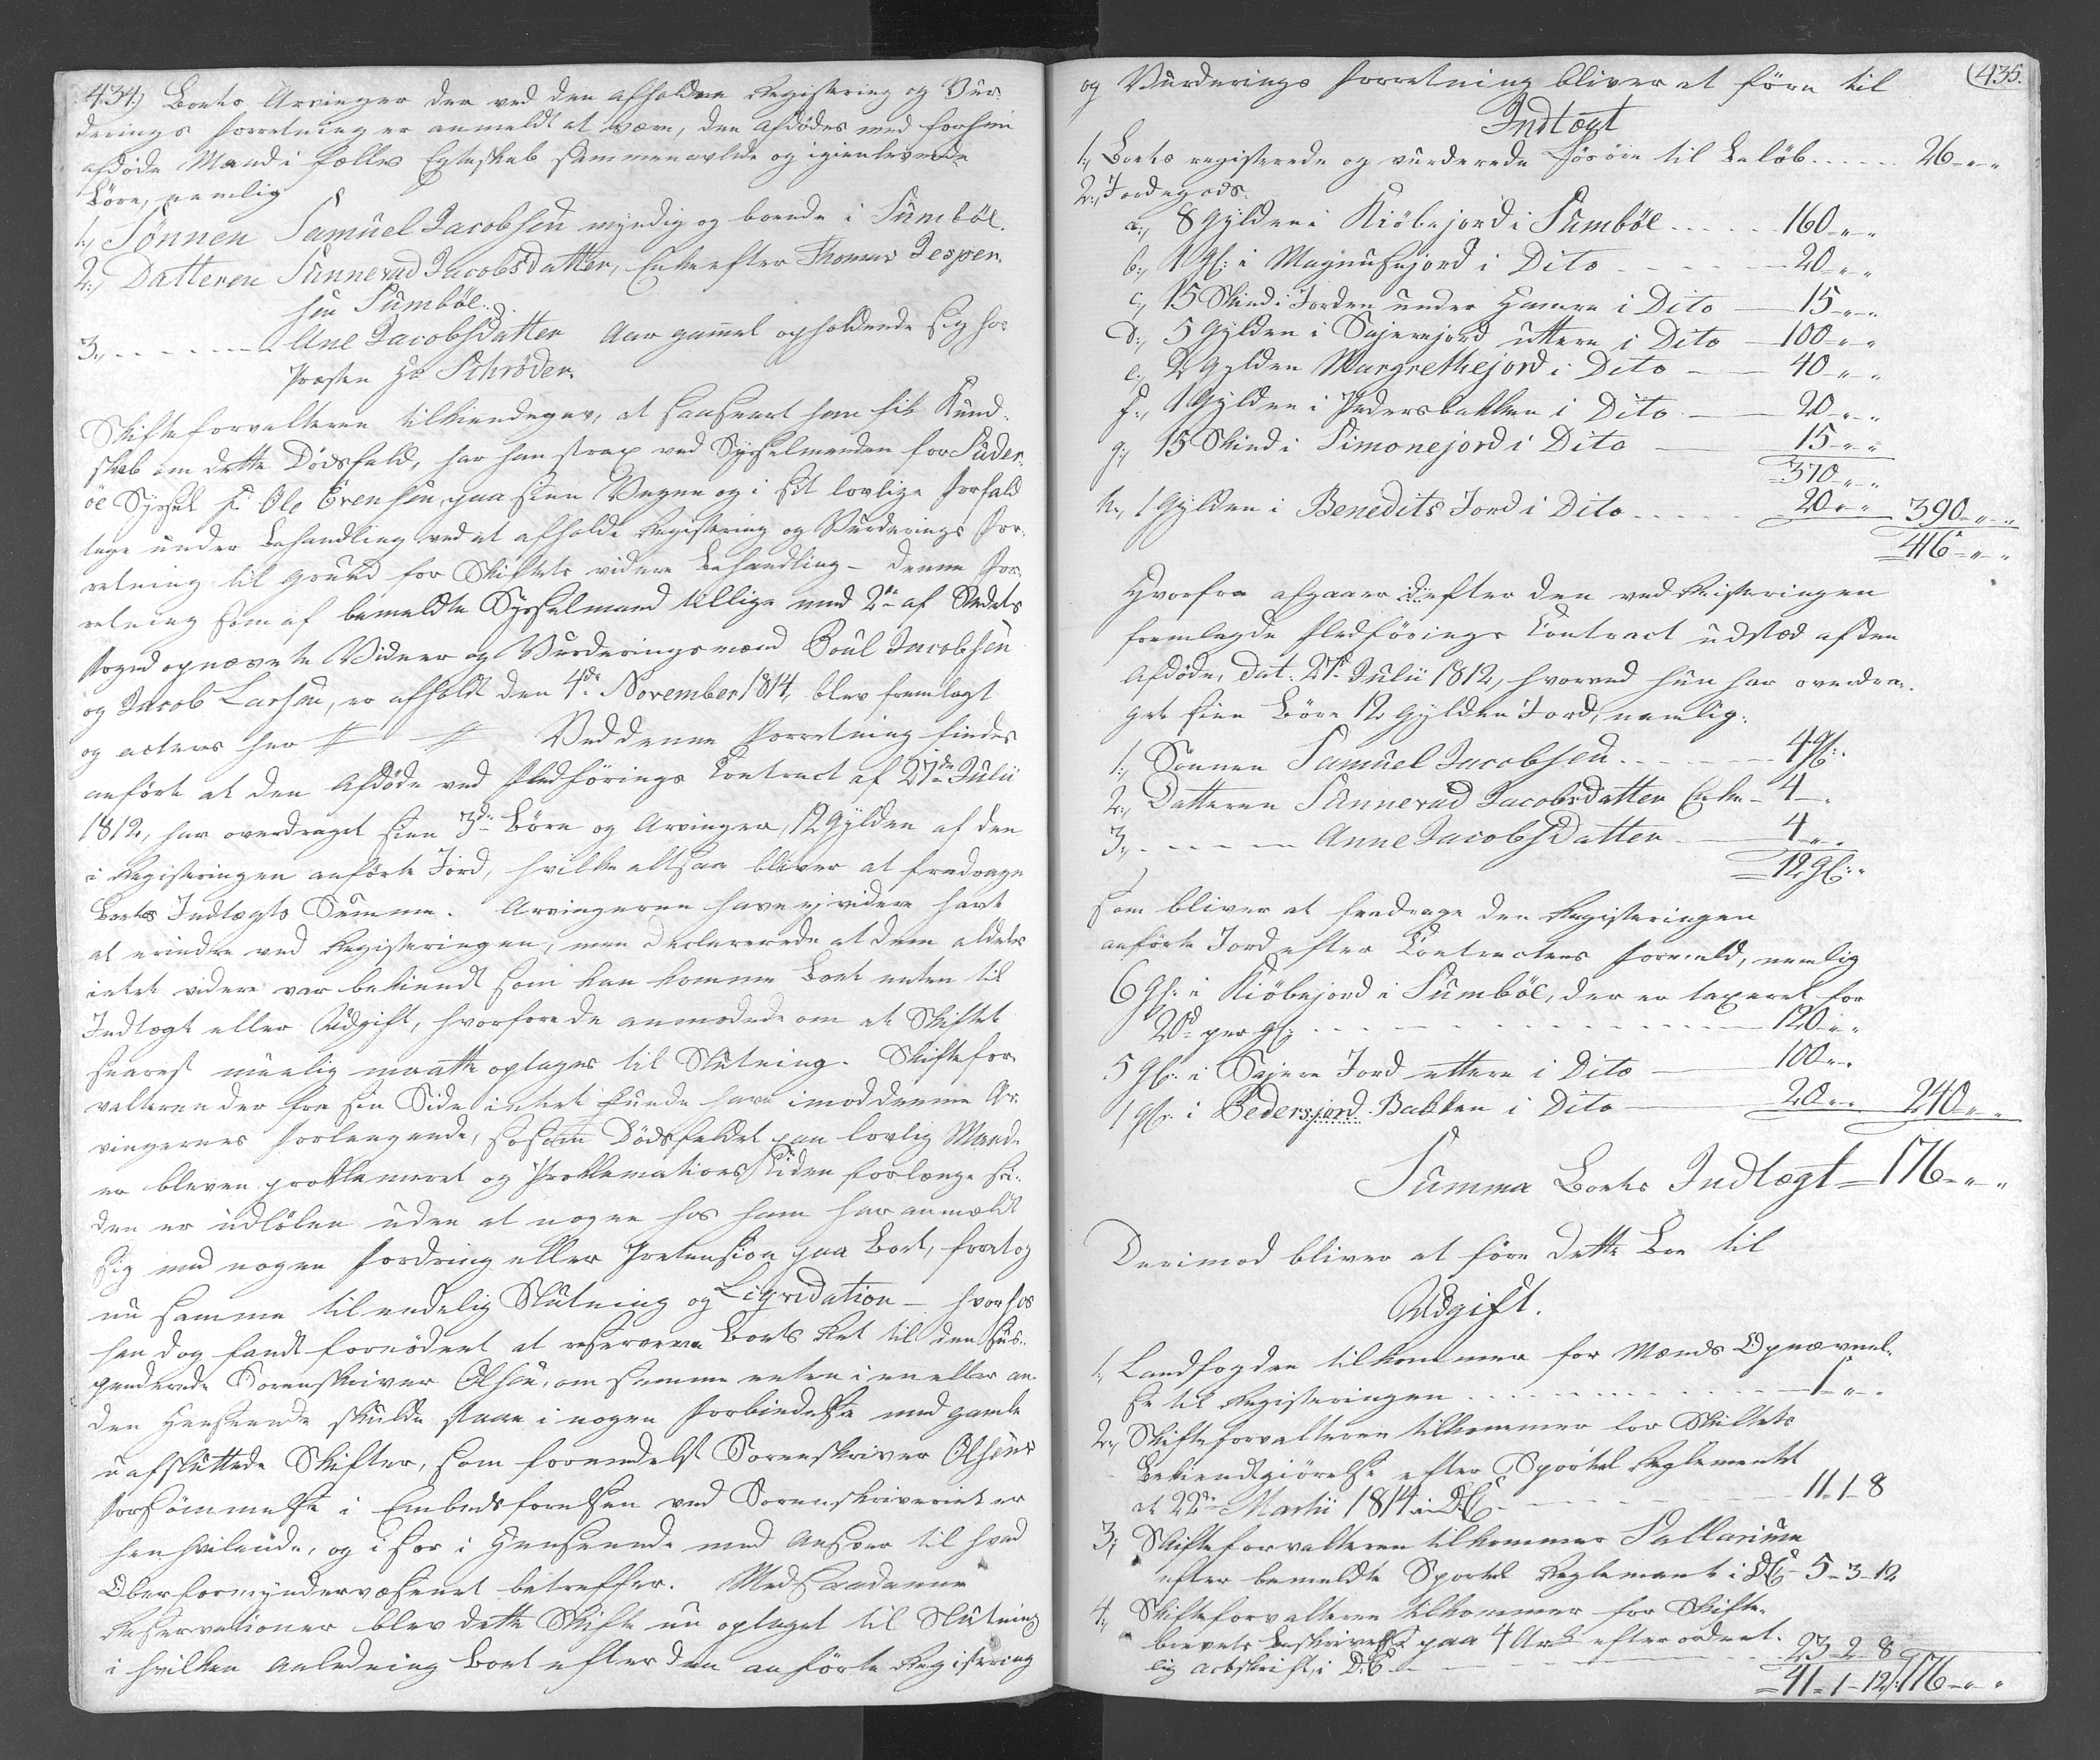 434.) Boets Arvinger der ved den afholdne Registering og Vur-
derings Forretning er anmeldt at være, den Afdødes med forhen
afdøde Mand i fælles Egteskab sammenavlede og igienlevende
Børn, nemlig
1., Sønnen Samuel Jacobsen myndig og boende i Sumbøe.
2., Datteren Sunnevad Jacobsdatter, Enke efter Thomas Jesper-
sen Sumbøe.
3., - - - - - - Ane Jacobsdatter Aar gammel opholdende sig hos
Præsten Hr Schrøder.
Skifteforvalteren tilkiendegav, at saasnart han fik Kund-
skab om dette Dødsfald, har han strax ved Sysselmanden for Suder-
øe Syssel Ole Evensen, paa sine Vegne og i sit lovlige Forfald
tage under Behandling ved at afholde Registering og Vurderings For-
retning til Grund for Skiftets videre Behandling - Denne For-
retning som af bemeldte Sysselmand tillige med 2de af Stedets
Foged opnævnte Vidner og Vurderingsmænd Poul Jacobsen
og Jacob Larsen, er afholdt den 4de November 1814, blev fremlagt
og acteres her # # Ved denne Forretning findes
anført at den Afdøde ved Fledførings Contract af 27de Julii
1812, har overdraget sine 3de Børn og Arvinger, 12 Gylden af den
i Registeringen anførte Jord, hvilke altsaa bliver at fradrage
Boets Indtægts Summa. Arvingerne have ej videre havt
at erindre ved Registeringen, men declarerede at dem aldeles
intet videre var bekiendt som kan komme Boet enten til
Indtægt eller Udgift, hvorfore de anmodede om at Skiftet
snarest muelig maatte optages til Slutning. Skiftefor-
valteren der fra sin Side intet funde have imod denne Ar-
vingernes Forlangende, saasom Dødsfaldet paa lovlig Maade
er bleven proklameret og Proklamations Tiden forlænge si-
den er udløben uden at nogen hos ham har anmeldt
sig med nogen Fordring eller Prætension paa Boet, foretog
nu samme til endelig Slutning og Liqvidation - hvorhos
han dog fandt fornødent at reservere Boets Ret til den sus-
penderede Sorenskriver Olsen, om samme enten i en eller an-
den Henseende skulde staae i nogen Forbindelse med gamle
uafsluttede Skifter, som formedelst Sorenskriver Olsens
Forsømmelse i Embedsførelsen ved Sorenskriveriet er
henhvilende, og i sær i Henseende med Ansvar til hvad
Overformyndervæsenet betreffer. Med saadanne
Reservationer blev dette Skifte nu optaget til Slutning
i hvilken Anledning Boet efter den anførte Registering
(435.
og Vurderings Forretning bliver at føre til
Indtægt
1., Boets registerede og vurderede Løsøre til Beløb . . . . . 26 - " - "
2., Jordegods
a., 8 Gylden i Kiøbejord i Sumbøe . . . . . . 160 - " - "
b., 1 Gl: i Magnusejord i Dito - - - - - 20 - " - "
c., 15 Skind i Jorden under Hamre i Dito - 15 - " - "
d., 5 Gylden i Sajerejord uttere i Dito - 100 - " - "
e., 2 Gylden Margrethejord i Dito - - 40 - " - "
f., 1 Gylden i Pedersbakken i Dito - - 20 - " - "
g., 15 Skind i Simonejord i Dito - 15 - " - "
370 - " - "
h., 1 Gylden i Benedits Jord i Dito - - - - 20 - " - " 390 - " - "
416 - " - "
Hvorfra afgaaer efter den ved Registeringen
fremlagde Fledførings Contract udstæd af den
Afdøde, dat: 27de Julii 1812, hvorved hun har overdra-
get sine Børn 12 Gylden Jord, nemlig:
1., Sønnen Samuel Jacobsen - - - - - 4 Gl:
2., Datteren Sunnevad Jacobsdatter Enke - 4 - "
3., - - - - - Anne Jacobsdatter - - 4 - "
12 Gl: "
som bliver at fradrage den Registeringen
anførte Jord efter Contractens Formeld, nemlig
6 Gl: i Kiøbejord i Sumbøe, der er taxeret for
20d per Gl: - - - - - - - - - - 120 - " - "
5 Gl: i Sajere Jord uttere i Dito - - 100 - " - "
1 Gl: i Pedersjord Bakken i Dito - - 20 - " - " 240 - " - "
Summa Boets Indtægt = 176 - " - "
Derimod bliver at føre dette Boe til
Udgift.
1., Landfogden tilkommer for Mænds Opnævnel-
se til Registeringen . . . . . . . . . 1 - " - "
2., Skifteforvalteren tilkommer for Skiftets
Bekiendtgiørelse efter Sportel Reglementet
at 22de Martii 1814 i D.C. - - - - - - 11 - 1 - 8
3., Skifteforvalteren tilkommer Sallarium
efter bemeldte Sportel Reglement i D.C. - 5 - 3 - 12
4., Skifteforvalteren tilkommer for Skifte-
brevets Beskrivelse paa 4 Ark efter ordent-
lig Arkskrift, i D.C. - - - - - - 23 - 2 - 8
= 41 - 1 - 12 /: 176 - " - "